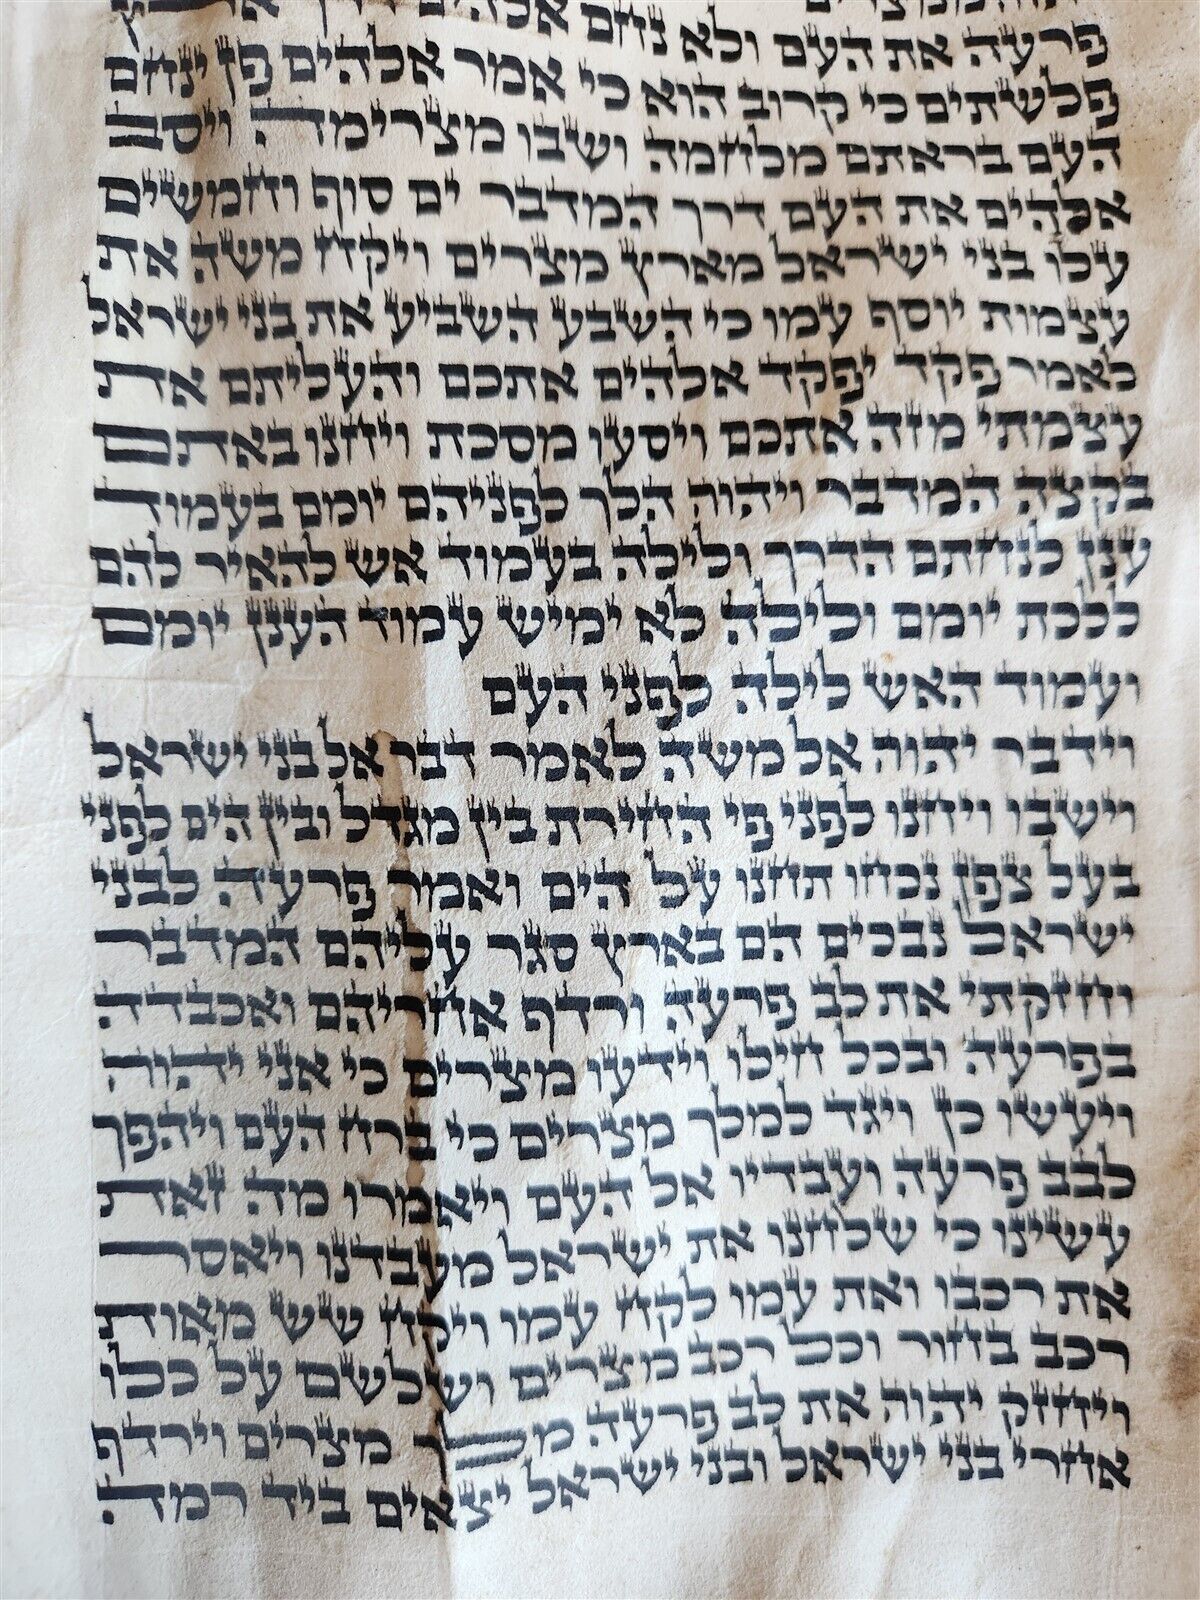 פרעה את העם ולא נחם אלהים
פלשתים כי קרוב הוא כי אמר אלהים פן ינחם
העם בראתם מלחמה ושבו מצרימה ויסב
אלהים את העם דרך המדבר ים סוף וחמשים
עלו בני ישראל מארץ מצרים ויקח משה את
עצמות יוסף עמו כי השבע השביע את בני ישראל
לאמר פקד יפקד אלהים אתכם והעליתם את
עצמתי מזה אתכם ויסעו מסכת ויחנו באתם
בקצה המדבר ויהוה הלך לפניהם יומם בעמוד
ענן לנחתם הדרך ולילה בעמוד אש להאיר להם
ללכת יומם ולילה לא ימיש עמוד הענן יומם
ועמוד האש לילה לפני העם
וידבר יהוה אל משה לאמר דבר אל בני ישראל
וישבו ויחנו לפני פי החירת בין מגדל ובין הים לפני
בעל צפן נכחו תחנו על הים ואמר פרעה לבני
ישראל נבכים הם בארץ סגר עליהם המדבר
וחזקתי את לב פרעה ורדף אחריהם ואכבדה
בפרעה ובכל חילו וידעו מצרים כי אני יהוה
ויעשו כן ויגד למלך מצרים כי ברח העם ויהפך
לבב פרעה ועבדיו אל העם ויאמרו מה זאת
עשינו כי שלחנו את ישראל מעבדנו ויאסר
את רכבו ואת עמו לקח עמו ויקח שש מאות
רכב בחור וכל רכב מצרים ושלשם על כלו
ויחזק יהוה את לב פרעה מלך מצרים וירדף
אחרי בני ישראל ובני ישראל יצאים ביד רמה